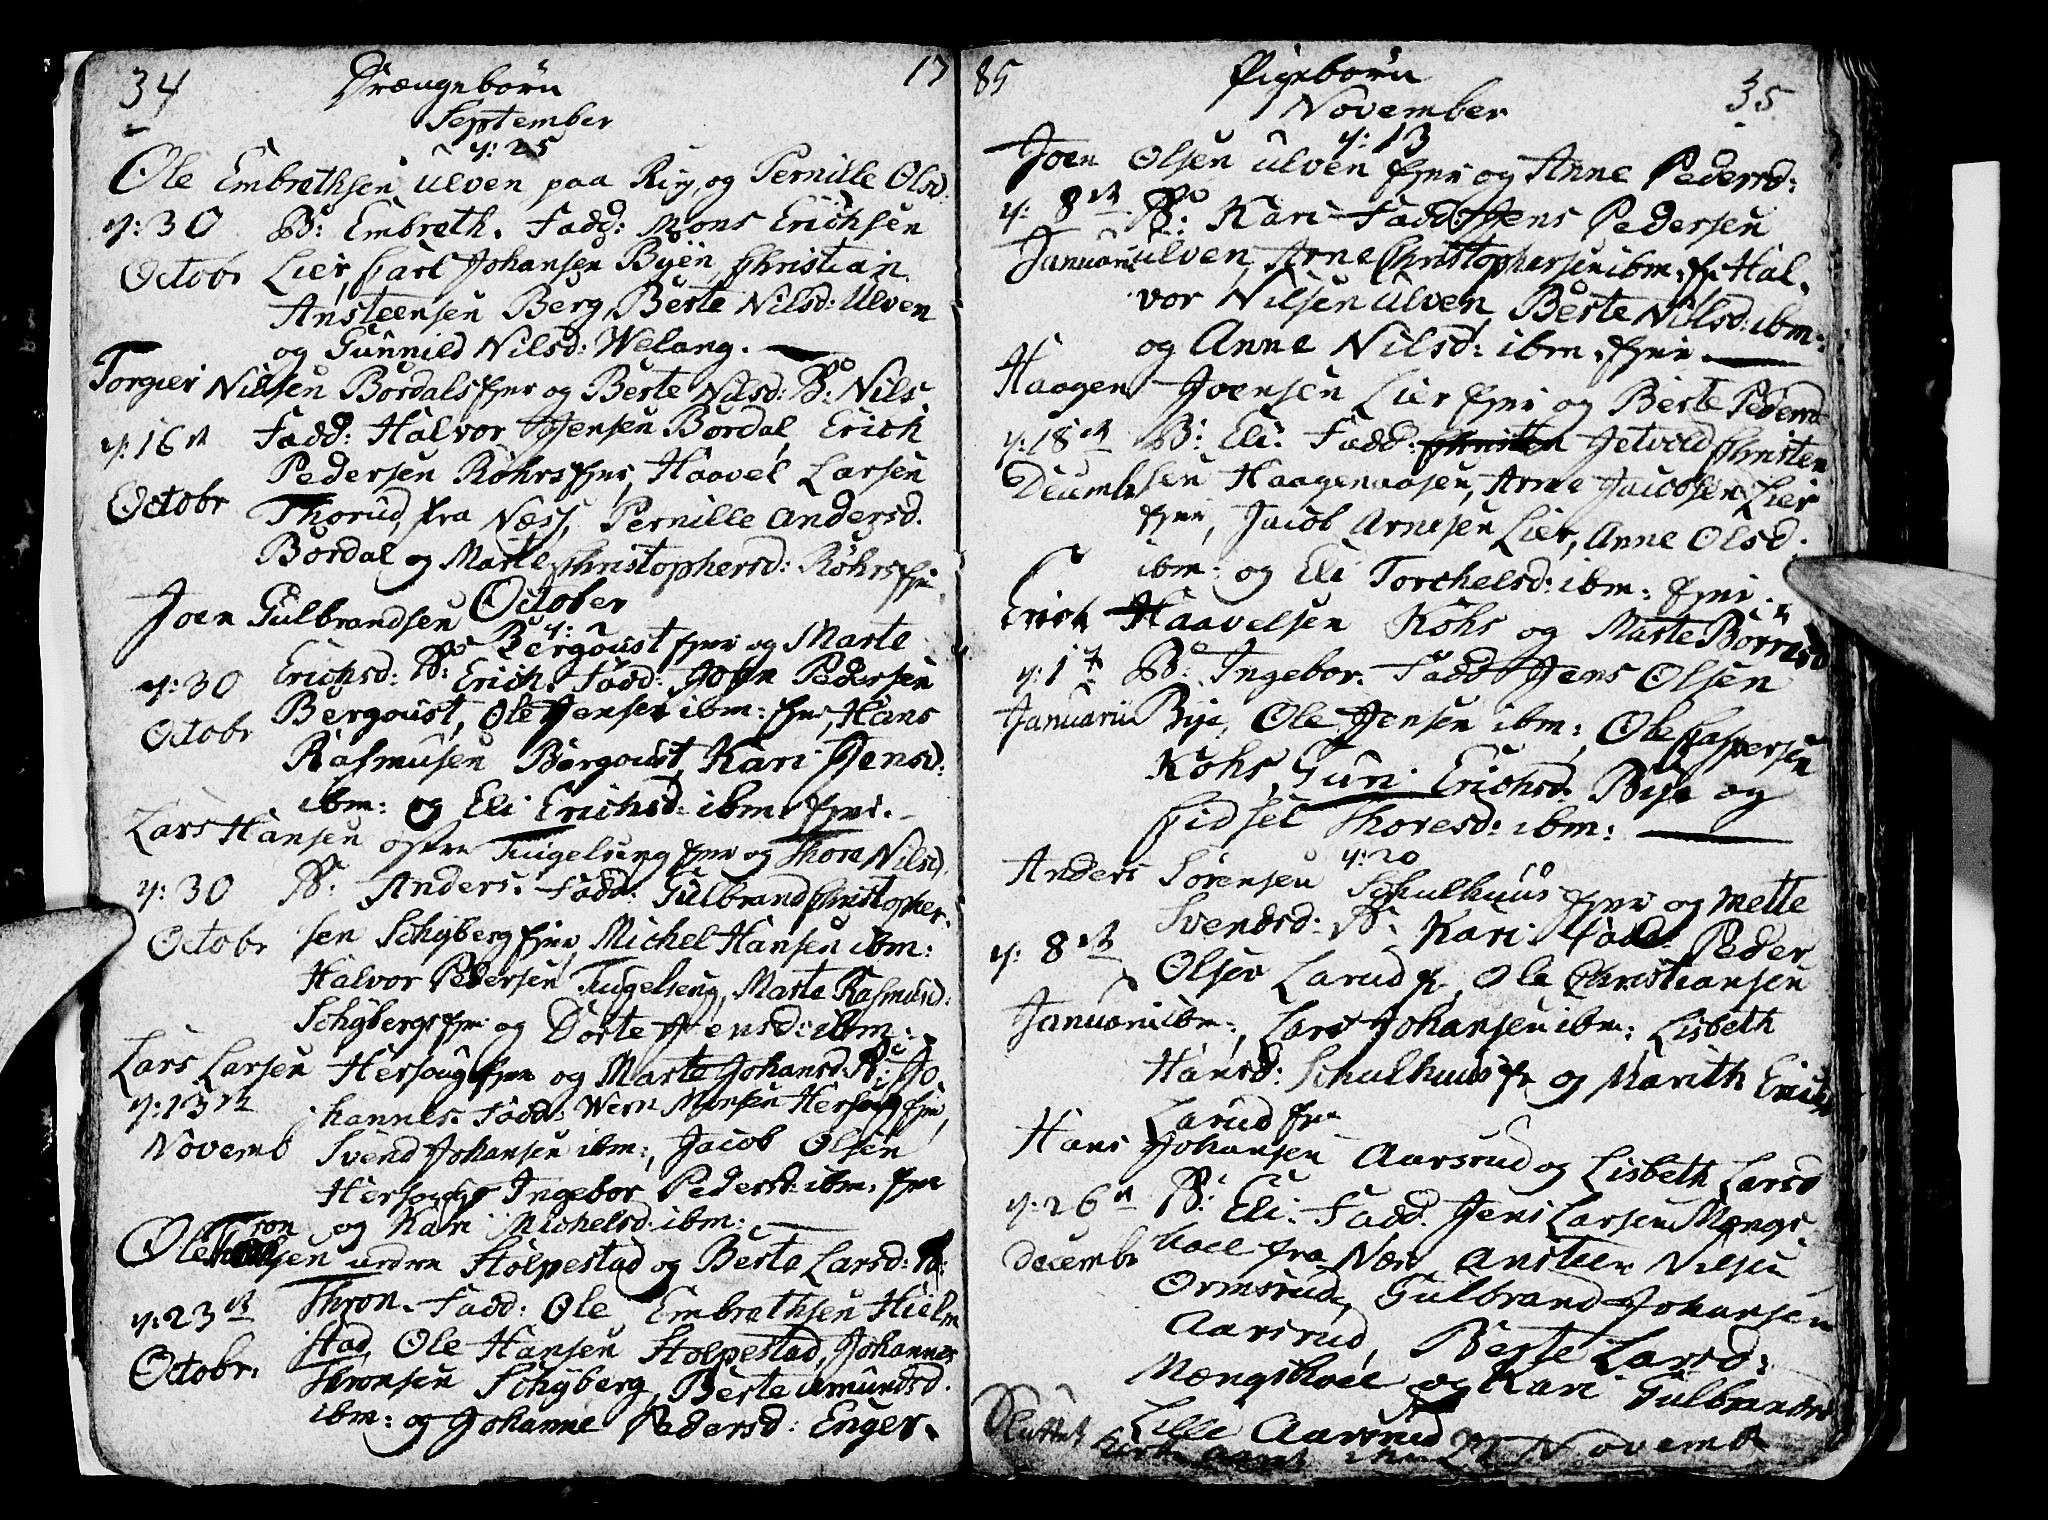 34 Drængebörn 17
September
y: 25
Ole Embrethsen Ulven paa Rig, og Pernille Olsd:
y: 30 B: Embreth. Fadd: Mons Erichsen
Octobr Lier, Carl Johansen Byen, Christian
Ansteensen Berg, Berte Nilsd: Ulven
og Gunnild Nilsd: Welang.
Torgier Nilsen Bordals Ejer og Berte Nilsd: B: Nils
y: 16de Fadd: Halvor Jensen Bordal, Erich
Pedersen Röhrs Ejer, Haavel Larsen
Octobr Thorud, fra Næss, Pernille Andersd.
Bordal og Marte Christophersd: Röhrs Ejer
October
y: 2
Joen Gulbrandsen Bergoust Ejer og Marte
Erichsd: B: Erich. Fadd: John Pedersen
y: 30
Bergoust, Ole Jensen ibm: Ejer, Hans
Octobr
Rasmusen Bergoust, Kari Jensd:
ibm: og Eli Erichsd: ibm: Ejer.
Lars Hansen Tingelseng Ejer og Thore Nilsd.
y: 30 B: Anders. Fadd: Gulbrand Christopher-
Octobr sen Schyberg Ejer, Michel Hansen ibm:
Halvor Pedersen Tingelseng, Marte Rasmusd:
Schybergs Ejer og Dorte Jensd: ibm:
Lars Larsen Hersoug Ejer og Marte Johansd: B: Jo
y: 13de hannes. Fadd: Wern Monsen Hersoug Ejer,
Novemb Svend Johansen ibm:, Jacob Olsen
Hersoug Ingebor Pedersd: ibm: Ejer
og Kari Michelsd: ibm:
Ole Tronsen nedre Stolpestad og Berte Larsd: B:
y: 23de Thron. Fadd: Ole Embrethsen Hielm
stad, Ole Hansen Stolpestad, Johannes
Octobr. Thronsen Schyberg, Berte Amundsd.
ibm: og Johanne Pedersd: Enger.
85 Pigebörn 35
November
y: 13
Joen Olsen Ulven Ejer og Anne Pedersd:
y: 8de B: Kari Fadd: Jens Pedersen
Januarii Ulven, Arne Christophersen ibm: Ejr Hal-
vor Nilsen Ulven Berte Nilsd: ibm:
og Anne Nilsd: ibm: Ejer.
Haagen Joensen Lier Ejer og Berte Pedersd
y: 18de B: Eli. Fadd: Jetvold Christen
Decembr sen Haagenaasen, Arne Jacobsen Lier
Ejer, Jacob Arnesen Lier, Anne Olsd:
ibm: og Eli Torchelsd: ibm: Ejer.
Erich Haavelsen Kohs og Marte Börresd
y: 1te B: Ingebor. Fadd Jens Olsen
Januarii Bye, Ole Jensen ibm:, Ole Caspersen
Kohs, Guri Erichsd: Bye og
Sidsel Thoresd: ibm:
y: 20
Anders Sörensen Schulhuus Ejer og Mette
Svendsd: B: Kari. Fadd: Peder
y: 8de
Olsen Larud Ejr, Ole Christiansen
Januarii ibm:, Lars Johansen ibm: Lisbeth
Hansd: Schulhuus Ejr og Marith Erichs
Larud Ejr
Hans Johansen Aarsrud og Lisbeth Larsd
y: 26de B: Eli. Fadd. Jens Larsen Mængs-
hoel fra Næs Ansteen Nilsen
Decembr
Ormsrud, Gulbrand Johansen
Aarsrud, Berte Larsd:
Mængshoel og Kari Gulbrandsd
Lille Aarsrud
Sluttet Novemb